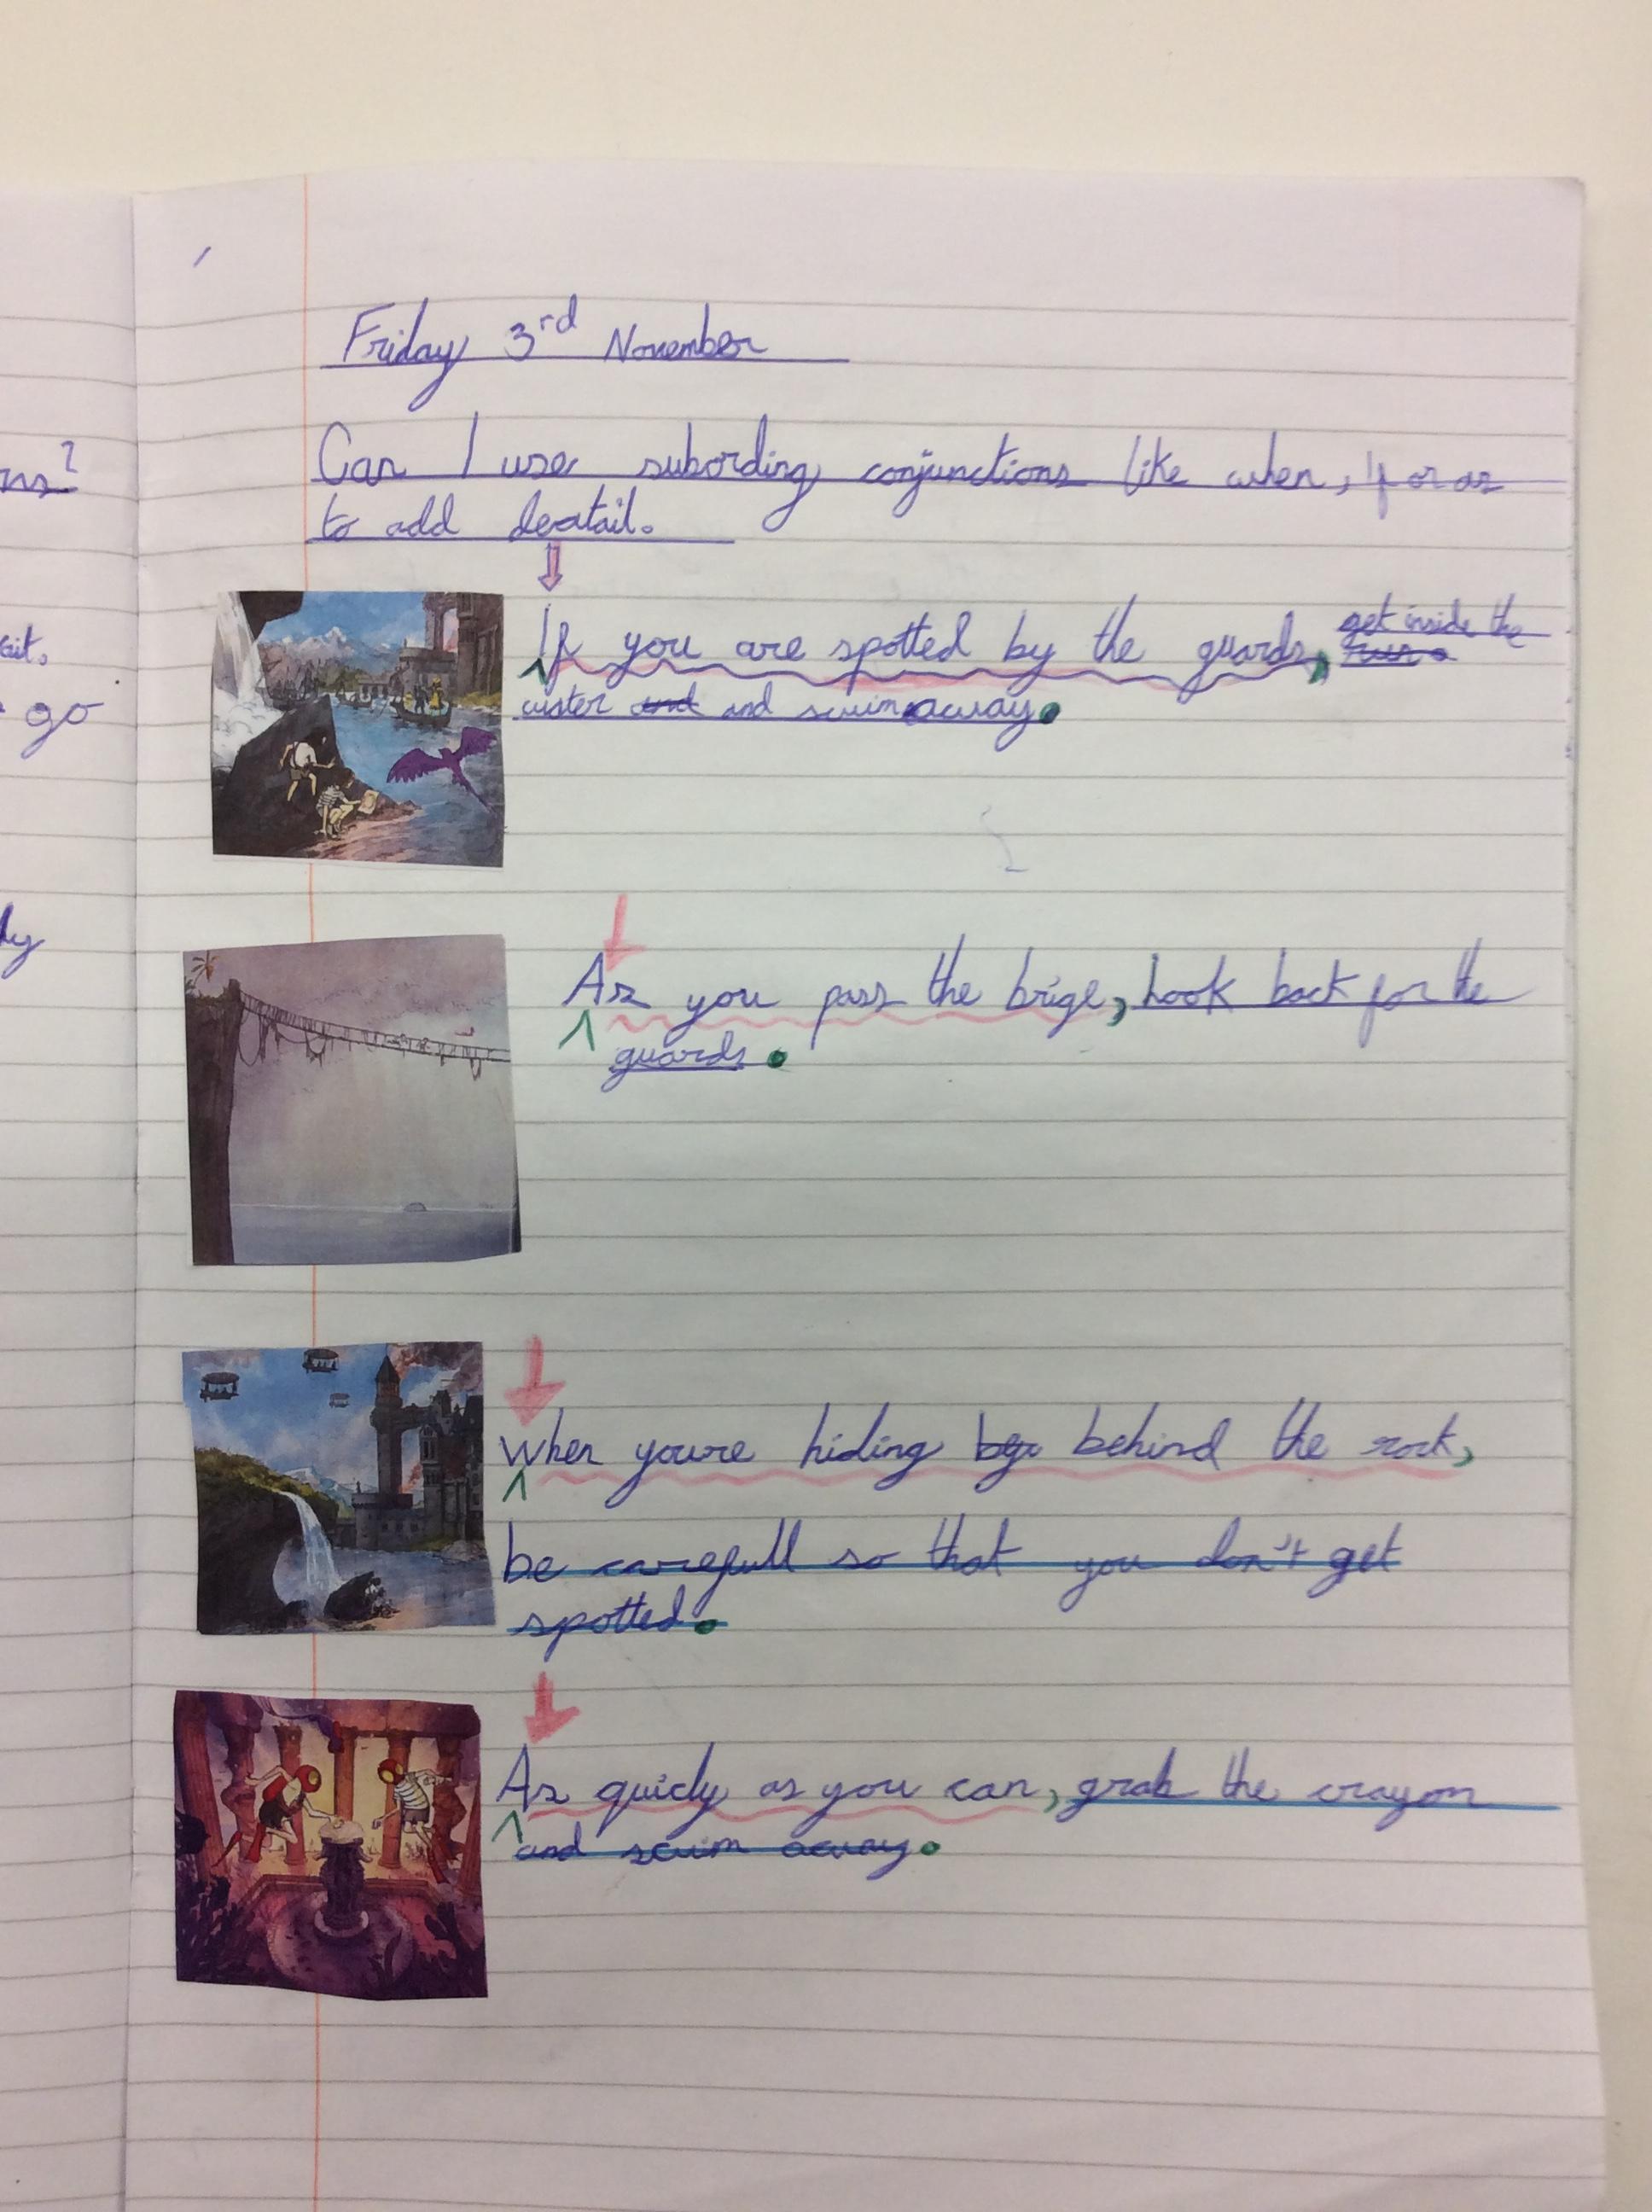 Friday 3rd November
Can I use subording conjunctions like when, if or as
to add deatail.
If you are spotted by the guards, get inside the
run.
wster and and swim away.
As you pass the brige, look back for the
guards.
When youre hiding behind the rock,
be carefull so that you don't get
spotted.
As quicly as you can, grab the crayon
and swim away.
ns?
ait.
go
ly